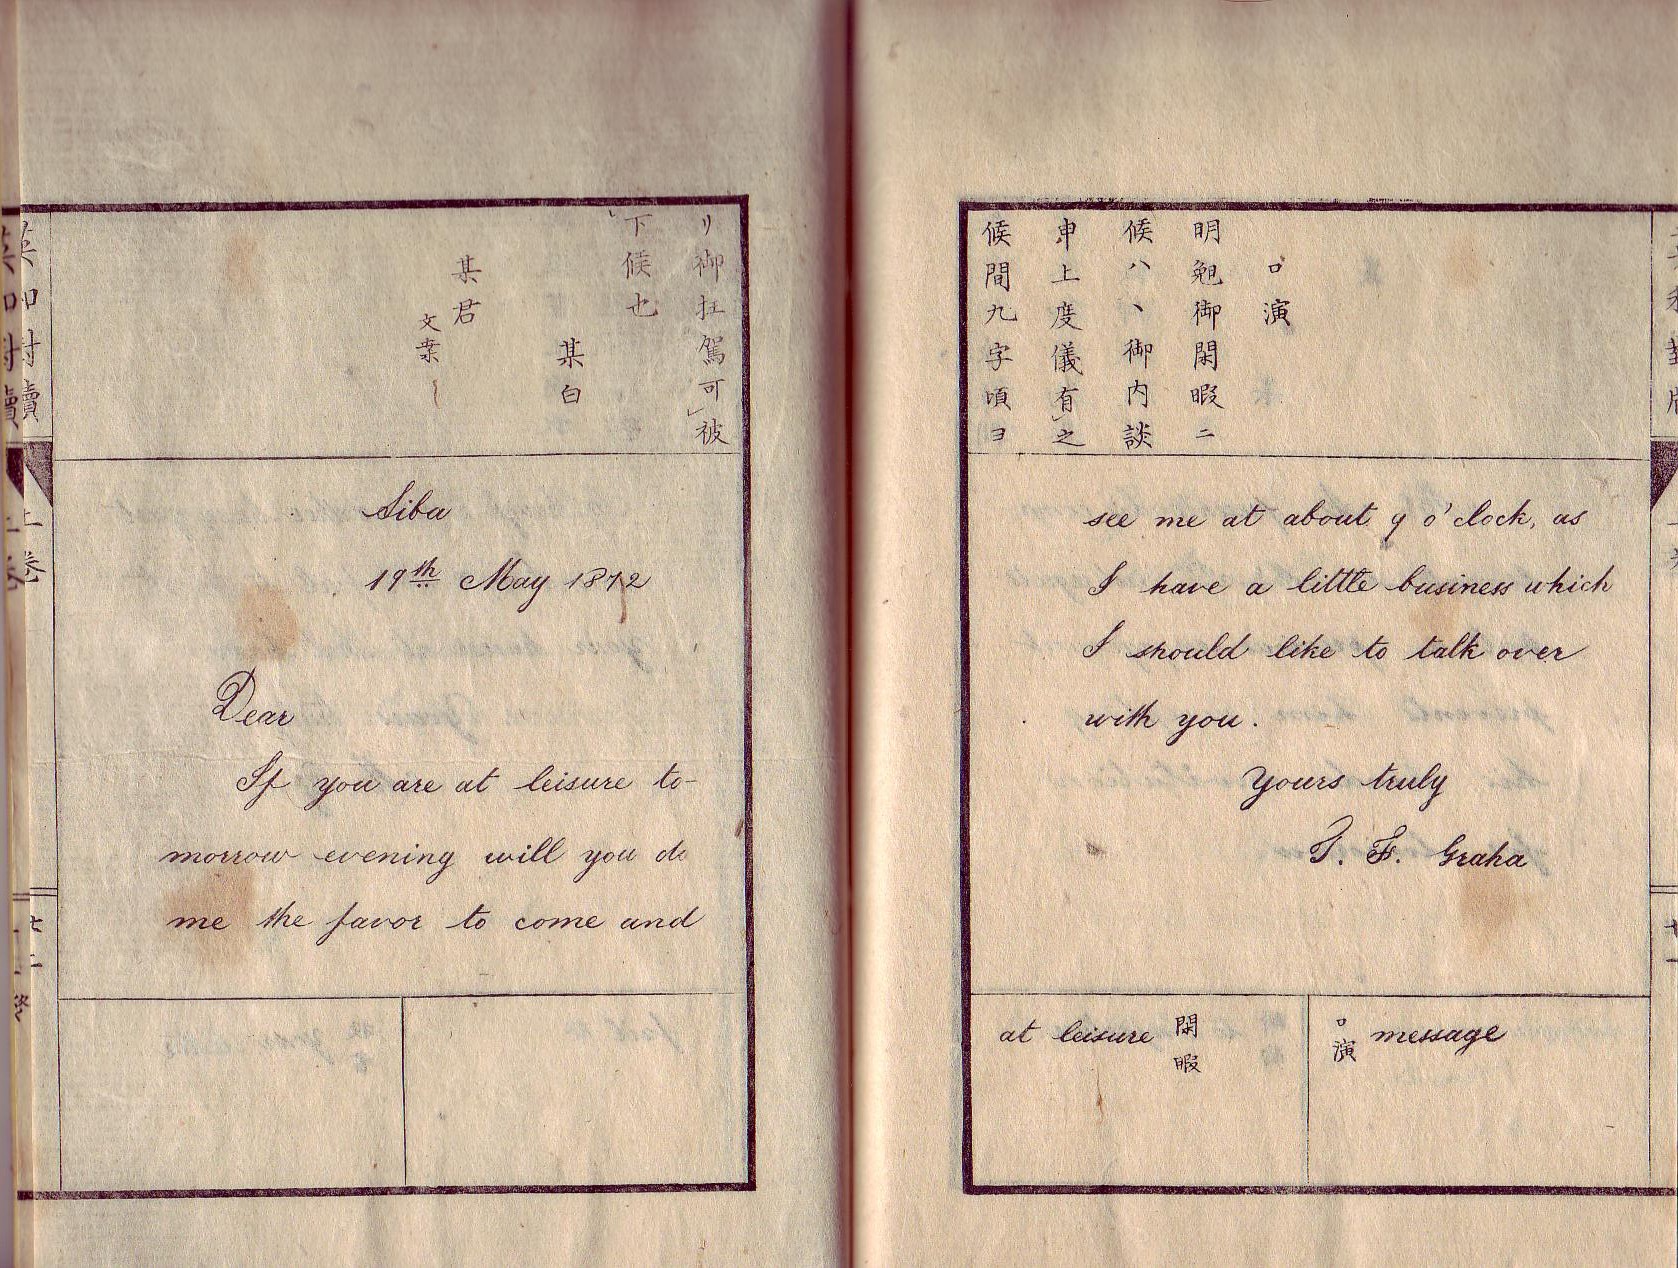 口演
明晩御閑暇ニ
候ハヽ御内談
申上度儀有之
候間九字頃ヨ
リ御枉駕可被
下候也
某白
某君
文案
Siba
19th May 1872
Dear
If you are at leisure to-
morrow evening will you do
me the favor to come and
see me at about 9 o'clock, as
I have a little business which
I should like to talk over
with you.
Yours truly
T. F. Graha
口演 message
at leisure 閑暇
上巻